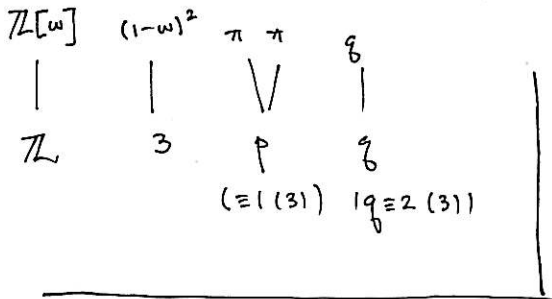 ℤ[ω] (1-ω)² π π q
ℤ 3 p q
(≡1 (3)) (q≡2 (3))